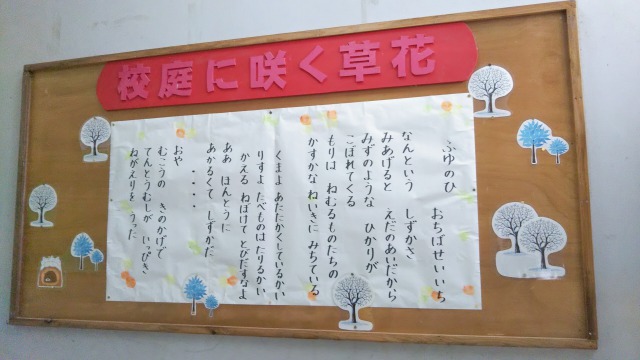 校庭に咲く草花
ふゆのひ
おちばせいいち
なんという しずかさ
みあげると えだのあいだから
みずのような ひかりが
こぼれてくる
もりは ねむるものたちの
かすかな ねいきに みちている
くまよ あたたかくしているかい
りすよ たべものはたりるかい
かえる ねぼけて とびだすなよ
ああ ほんとうに
あかるくて しずかだ
・・・・
おや
むこうの きのかげで
てんとうむしが いっぴき
ねがえりを うった